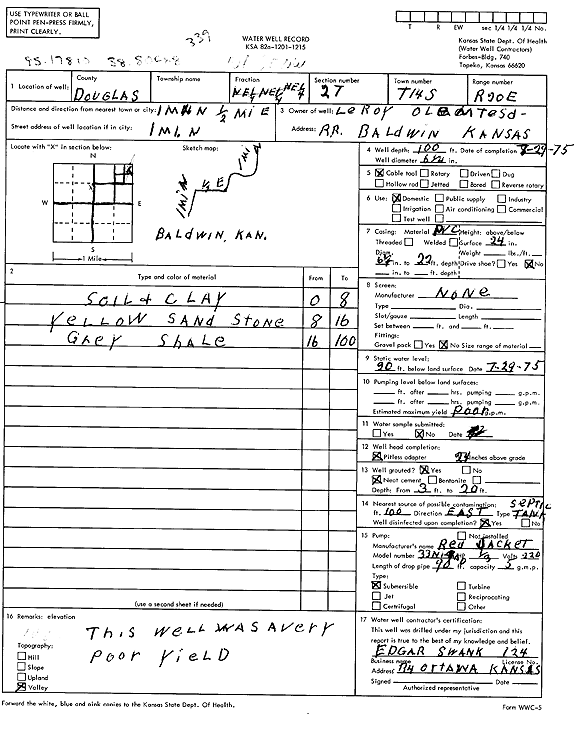 USE TYPEWRITER OR BALL
POINT PEN-PRESS FIRMLY,
PRINT CLEARLY.
339
WATER WELL RECORD
KSA 82a-1201-1215
T R EW sec 1/4 1/4 1/4 No.
Kansas State Dept. Of Health
(Water Well Contractors)
Forbes-Bldg. 740
Topeka, Kansas 66620
1 Location of well: County DOUGLAS Township name Fraction NE1/4 NE1/4 NE1/4 Section number 27 Town number T14S Range number R20E
Distance and direction from nearest town or city: 1 MI N 1/2 MI E
Street address of well location if in city: 1 MI. N
3 Owner of well: LeROY
Address: RR. BALDWIN KANSAS
Locate with "X" in section below:
N
W E
S
1 Mile
Sketch map:
1 MI N
1/2 E
1 MI N
BALDWIN, KAN.
4 Well depth: 100 ft. Date of completion 8-29-75
Well diameter in.
5 ☒ Cable tool ☐ Rotary ☐ Driven ☐ Dug
☐ Hollow rod ☐ Jetted ☐ Bored ☐ Reverse rotary
6 Use: ☒ Domestic ☐ Public supply ☐ Industry
☐ Irrigation ☐ Air conditioning ☐ Commercial
☐ Test well ☐
7 Casing: Material PVC Height: above/below
Threaded ☐ Welded ☐ Surface 24 in.
Diam. Weight lbs./ft.
in. to 22 ft. depth Drive shoe? ☐ Yes ☒ No
in. to ft. depth
8 Screen:
Manufacturer NONE
Type Dia.
Slot/gauze Length
Set between ft. and ft.
Fittings:
Gravel pack ☐ Yes ☒ No Size range of material
9 Static water level:
90 ft. below land surface Date 7-29-75
10 Pumping level below land surfaces:
ft. after hrs. pumping g.p.m.
ft. after hrs. pumping g.p.m.
Estimated maximum yield Poor g.p.m.
11 Water sample submitted:
☐ Yes ☒ No Date
12 Well head completion:
☒ Pitless adapter 24 inches above grade
13 Well grouted? ☒ Yes ☐ No
☒ Neat cement ☐ Bentonite ☐
Depth: From 3 ft. to 20 ft.
14 Nearest source of possible contamination: SEPTIC
ft. 100 Direction EAST Type TANK
Well disinfected upon completion? ☒ Yes ☐ No
15 Pump: ☐ Not installed
Manufacturer's name Red JACKET
Model number HP 1/3 Volts 230
Length of drop pipe 90 ft. capacity g.m.p.
Type:
☒ Submersible ☐ Turbine
☐ Jet ☐ Reciprocating
☐ Centrifugal ☐ Other
2 Type and color of material From To
SOIL & CLAY 0 8
YELLOW SAND STONE 8 16
GREY SHALE 16 100
(use a second sheet if needed)
16 Remarks: elevation
THIS WELL WAS A VERY
POOR YIELD
Topography:
☐ Hill
☐ Slope
☐ Upland
☒ Valley
17 Water well contractor's certification:
This well was drilled under my jurisdiction and this
report is true to the best of my knowledge and belief.
EDGAR SWANK 124
Business name License No.
Address R4 OTTAWA KANSAS
Signed Date
Authorized representative
Forward the white, blue and pink copies to the Kansas State Dept. Of Health.
Form WWC-5